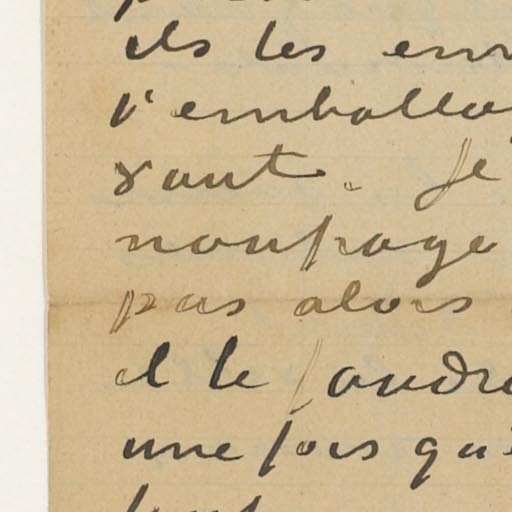 ils les env
j'emballa
vant. Je
pas alors
il le faudra
une fois qu'